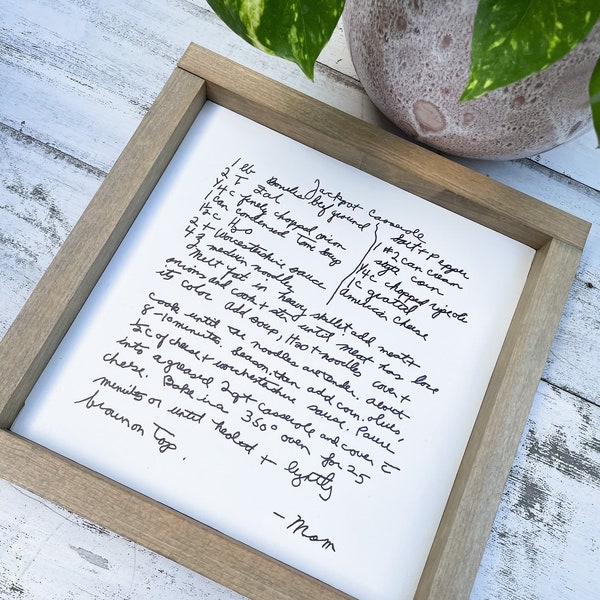 Jackpot Casserole
1 lb Boneless beef ground
2 T Fat
1/4 c finely chopped onion
1 can condensed Tom soup
1 1/2 c H20
2 t Worcestershire sauce
4 oz medium noodles
Salt + pepper
#2 can cream
corn
1/4 c chopped
1 c grated
American cheese
Melt fat in heavy skillet add meat +
onions and cook + stir until meat has lose
its color. Add soup, H20 + noodles. cover +
Cook until the noodles are tender. about
8-10 minutes. Season. then add corn, olives,
1/2 c of cheese + worchestershire sauce. Pour
into a greased 2 qt casserole and cover c̄
cheese. Bake in a 350° oven for 25
minutes or until heated + lightly
brown on Top.
- Mom